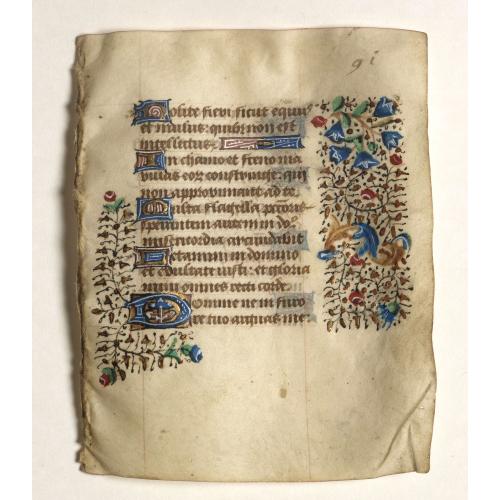 91
Nolite fieri sicut equus
et mulus: quibus non est
intellectus
In chamo et freno ma
xillas eorum constringe: qui
non approximant ad te
Multa flagella peccatoris
sperantem autem in do
misericordia circundabit
Letamini in domino
et exultate iusti: et gloria
mini omnes recti corde
Domine ne in furo
re tuo arguas me